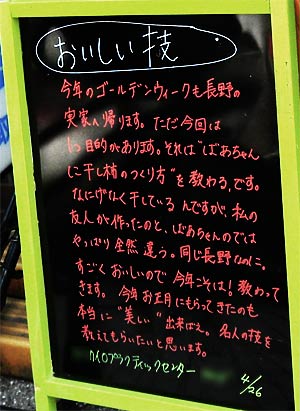 おいしい技
今年のゴールデンウィークも長野の
実家へ帰ります。ただ今回は
1つ目的があります。それは“ばあちゃん
に干し柿のつくり方”を教わる、です。
なにげなく干しているんですが、私の
友人が作ったのと、ばあちゃんのでは
やっぱり全然違う。同じ長野なのに。
すごくおいしいので今年こそは!教わって
きます。今年お正月にもらってきたのも
本当に“美しい”出来ばえ。名人の技を
教えてもらいたいと思います。
カイロプラクティックセンター
4/26